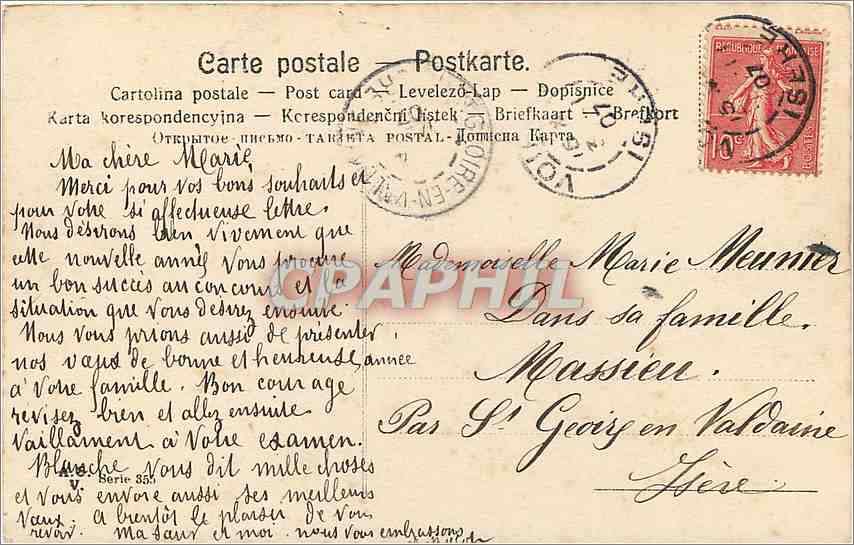 Carte postale — Postkarte.
Cartolina postale — Post card — Levelező-Lap — Dopisnice
Karta korespondencyjna — Korespondenční lístek — Briefkaart — Brefkort
Открытое письмо — TARJETA POSTAL — Дописна Карта
REPUBLIQUE FRANÇAISE
10 c
ISERE
07
VOI
ISERE
07
GEOIRE-EN-VALD
Ma chère Marie
Merci pour vos bons souhaits et
pour votre si affectueuse lettre.
Nous désirons bien vivement que
cette nouvelle année vous procure
un bon succès au concours et la
situation que vous désirez ensuite.
Nous vous prions aussi de présenter
nos vœux de bonne et heureuse année
à votre famille. Bon courage
revisez bien et allez ensuite
vaillamment à votre examen.
Blanche vous dit mille choses
et vous envoie aussi ses meilleurs
vœux. A bientôt le plaisir de vous
revoir. Ma sœur et moi nous vous embrassons
Serie 355
Mademoiselle Marie Meunier
Dans sa famille.
Massieu.
Par St Geoirs en Valdaine
Isère
CPAPHIL